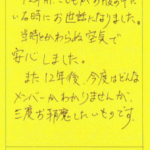 いる時にお世話になりました。
当時とかわらぬ空気で
安心しました。
また12年後、今度はどんな
メンバーかわかりませんが、
三度お邪魔したいもうです。